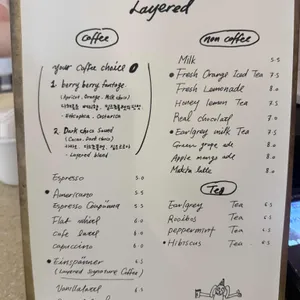 Layered
coffee
your coffee choice
1. berry berry fantasy
(Apricot, Orange, Milk choco)
- Ethiopia, Costarica
2. Dark choco sweet
(Cacao, Dark choco)
- Layered blend
Espresso 5.0
• Americano 5.5
Espresso Conpanna 5.5
Flat white 6.0
cafe latte 6.0
cappuccino 6.0
• Einspänner 6.5
(Layered Signature Coffee)
Vanilla latte 6.5
non coffee
Milk 5.5
• Fresh Orange Iced Tea 7.5
Fresh Lemonade 8.0
Honey lemon Tea 7.5
Real chocolat 7.0
• Earlgrey milk Tea 7.5
Green grape ade
Apple mango ade
Matcha latte
Tea
Earlgrey Tea 6.5
Rooibos Tea 6.5
peppermint Tea 6.5
• Hibiscus Tea 6.5